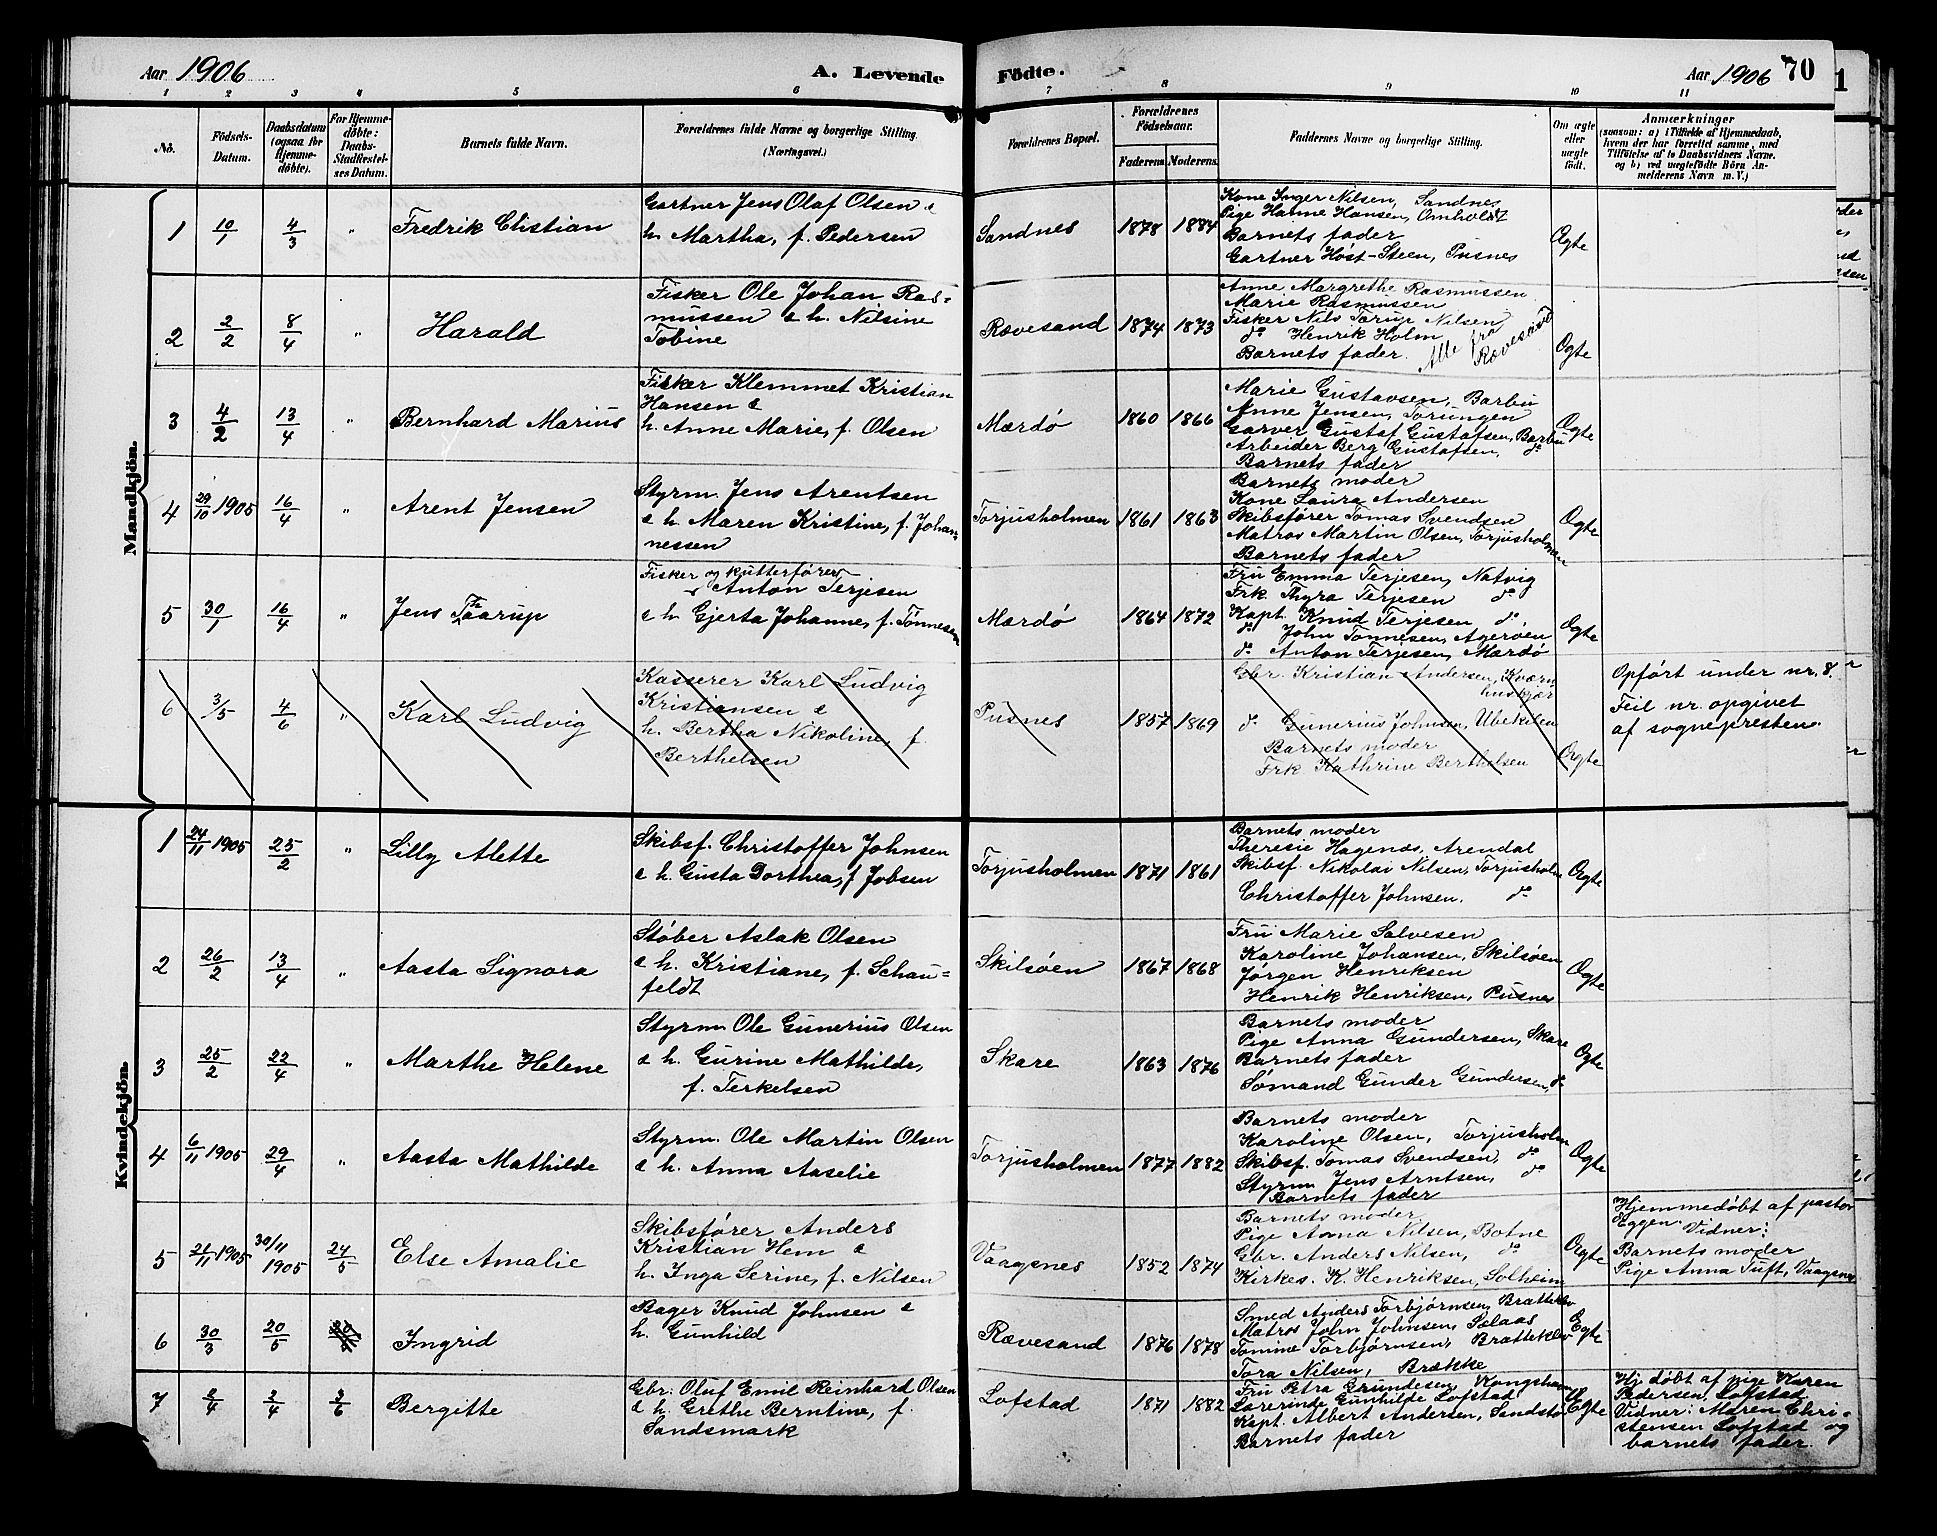 Aar 1906
A. Levende
Fødte.
Aar 1906
70
1 2 3 4 5 6 7 8 9 10 11
No.
Fødsels-
Datum.
Daabsdatum
(ogsaa for
Hjemme-
døbte).
For Hjemme-
døbte:
Daabs-
Stadfæstel-
ses Datum.
Barnets fulde Navn.
Forældrenes fulde Navne og borgerlige Stilling.
(Næringsvei.)
Forældrenes Bopæl.
Forældrenes
Fødselsaar.
Faderens. Moderens.
Faddernes Navne og borgerlige Stilling.
Om ægte
eller
uægte
født.
Anmærkninger
(saasom: a) i Tilfælde af Hjemmedaab,
hvem der har forrettet samme, med
Tilføielse af to Daabsvidners Navne.
og b) ved uægtefødte Børn An-
melderens Navn m. V.)
Mandkjøn.
1 10/1 4/3 " Fredrik Clistian
Gartner Jens Olaf Olsen &
h. Martha, f. Pedersen
Sandnes 1878 1884
Kone Inger Nilsen, Sandnes
Pige Hanne Hansen, Omholdt
Barnets fader
Gartner Høst-Steen, Pusnes
Ægte
2 2/2 8/4 " Harald
Fisker Ole Johan Ras-
mussen & h. Nilsine
Tobine
Rævesand 1874 1873
Anne Margrethe Rasmussen
Marie Rasmussen
Fisker Nils Torup Nilsen
do Henrik Holm
Barnets fader. Alle fra Rævesand
Ægte
3 4/2 13/4 " Bernhard Marius
Fisker Klemmet Kristian
Hansen &
h. Anne Marie, f. Olsen
Mærdø 1860 1866
Marie Gustavsen, Barbu
Anne Jensen, Torungen
Garver Gustaf Gustafsen, Barbu
Arbeider Berg Gustafsen, do
Barnets fader
Ægte
4 29/10 1905 16/4 " Arent Jensen
Styrm. Jens Arentsen
& h. Maren Kristine, f. Johan-
nessen
Torjusholmen 1861 1863
Barnets moder
Kone Laura Andersen
Skibsfører Tomas Svendsen
Matros Martin Olsen, Torjusholmen
Barnets fader
Ægte
5 30/1 16/4 " Jens Taarup
Fisker og kutterfører
Anton Terjesen
& h. Gjerta Johanne, f. Tønnesen
Mærdø 1864 1872
Fru Emma Terjesen, Natvig
Frk. Thyra Terjesen do
Kapt. Knud Terjesen do
do John Tønnesen, Agerøen
do Anton Terjesen, Mærdø
Ægte
6 3/5 4/6 " Karl Ludvig
Kasserer Karl Ludvig
Kristiansen &
h. Bertha Nikoline, f.
Berthelsen
Pusnes 1857 1869
Gbr. Kristian Andersen, Kværn
huskjær
do Gunerius Johnsen, Ubekilen
Barnets moder
Frk. Kathrine Berthelsen
Ægte
Opført under nr. 8.
Feil nr. opgivet
af sognepresten.
Kvindekjøn.
1 24/11 1905 25/2 " Lilly Alette
Skibsf. Christoffer Johnsen
& h. Gusta Dorthea, f. Jobsen
Torjusholmen 1871 1861
Barnets moder
Theresie Hagenæs, Arendal
Skibsf. Nikolai Nilsen, Torjusholm
Christoffer Johnsen. do
Ægte
2 26/2 13/4 " Aasta Signora
Støber Aslak Olsen
& h. Kristiane, f. Schau-
feldt
Skilsøen 1867 1868
Fru Marie Salvesen
Karoline Johansen, Skilsøen
Jørgen Henriksen
Henrik Henriksen, Pusnes
Ægte
3 25/2 22/4 " Marthe Helene
Styrm. Ole Gunerius Olsen
& h. Gurine Mathilde,
f. Terkelsen
Skare 1863 1876
Barnets moder
Pige Anna Gundersen, Skare
Barnets fader
Sømand Gunder Gundersen, do
Ægte
4 6/11 1905 29/4 " Aasta Mathilde
Styrm. Ole Martin Olsen
& h. Anna Aaselie
Torjusholmen 1877 1882
Barnets moder
Karoline Olsen, Torjusholm
Skibsf. Tomas Svendsen, do
Styrm. Jens Arntsen, do
Barnets fader
Ægte
5 21/11 1905 30/11 1905 24/5 Else Amalie
Skibsfører Anders
Kristian Hem &
h. Inga Serine, f. Nilsen
Vaagsnes 1852 1874
Barnets moder
Pige Anna Nilsen, Botne
Gbr. Anders Nilsen, do
Kirkes. K. Henriksen, Solheim
Ægte
Hjemmedøbt af pastor
Eggen. Vidner:
Barnets moder
Pige Anna Tuft, Vaagsnes
6 30/3 20/5 Ingrid
Bager Knud Johnsen &
h. Gunhild
Rævesand 1876 1878
Smed Anders Torbjørnsen, Bratteklev
Matros John Johnsen, Sælaas
Tomine Torbjørnsen, Brætteklev
Tora Nilsen, Brække
Ægte
7 2/4 2/4 3/6 Bergitte
Gbr. Oluf Emil Reinhard Olsen
& h. Grethe Berntine, f.
Sandsmark
Lofstad 1871 1882
Fru Petra Grundesen, Kongshavn
Lærerinde Gunhilde Lofstad
Kapt. Albert Andersen, Sandstø
Barnets fader
Ægte
Hj. døbt af pige Karen
Pedersen, Lofstad
Vidner: Maren Chri-
stensen Lofstad og
barnets fader.